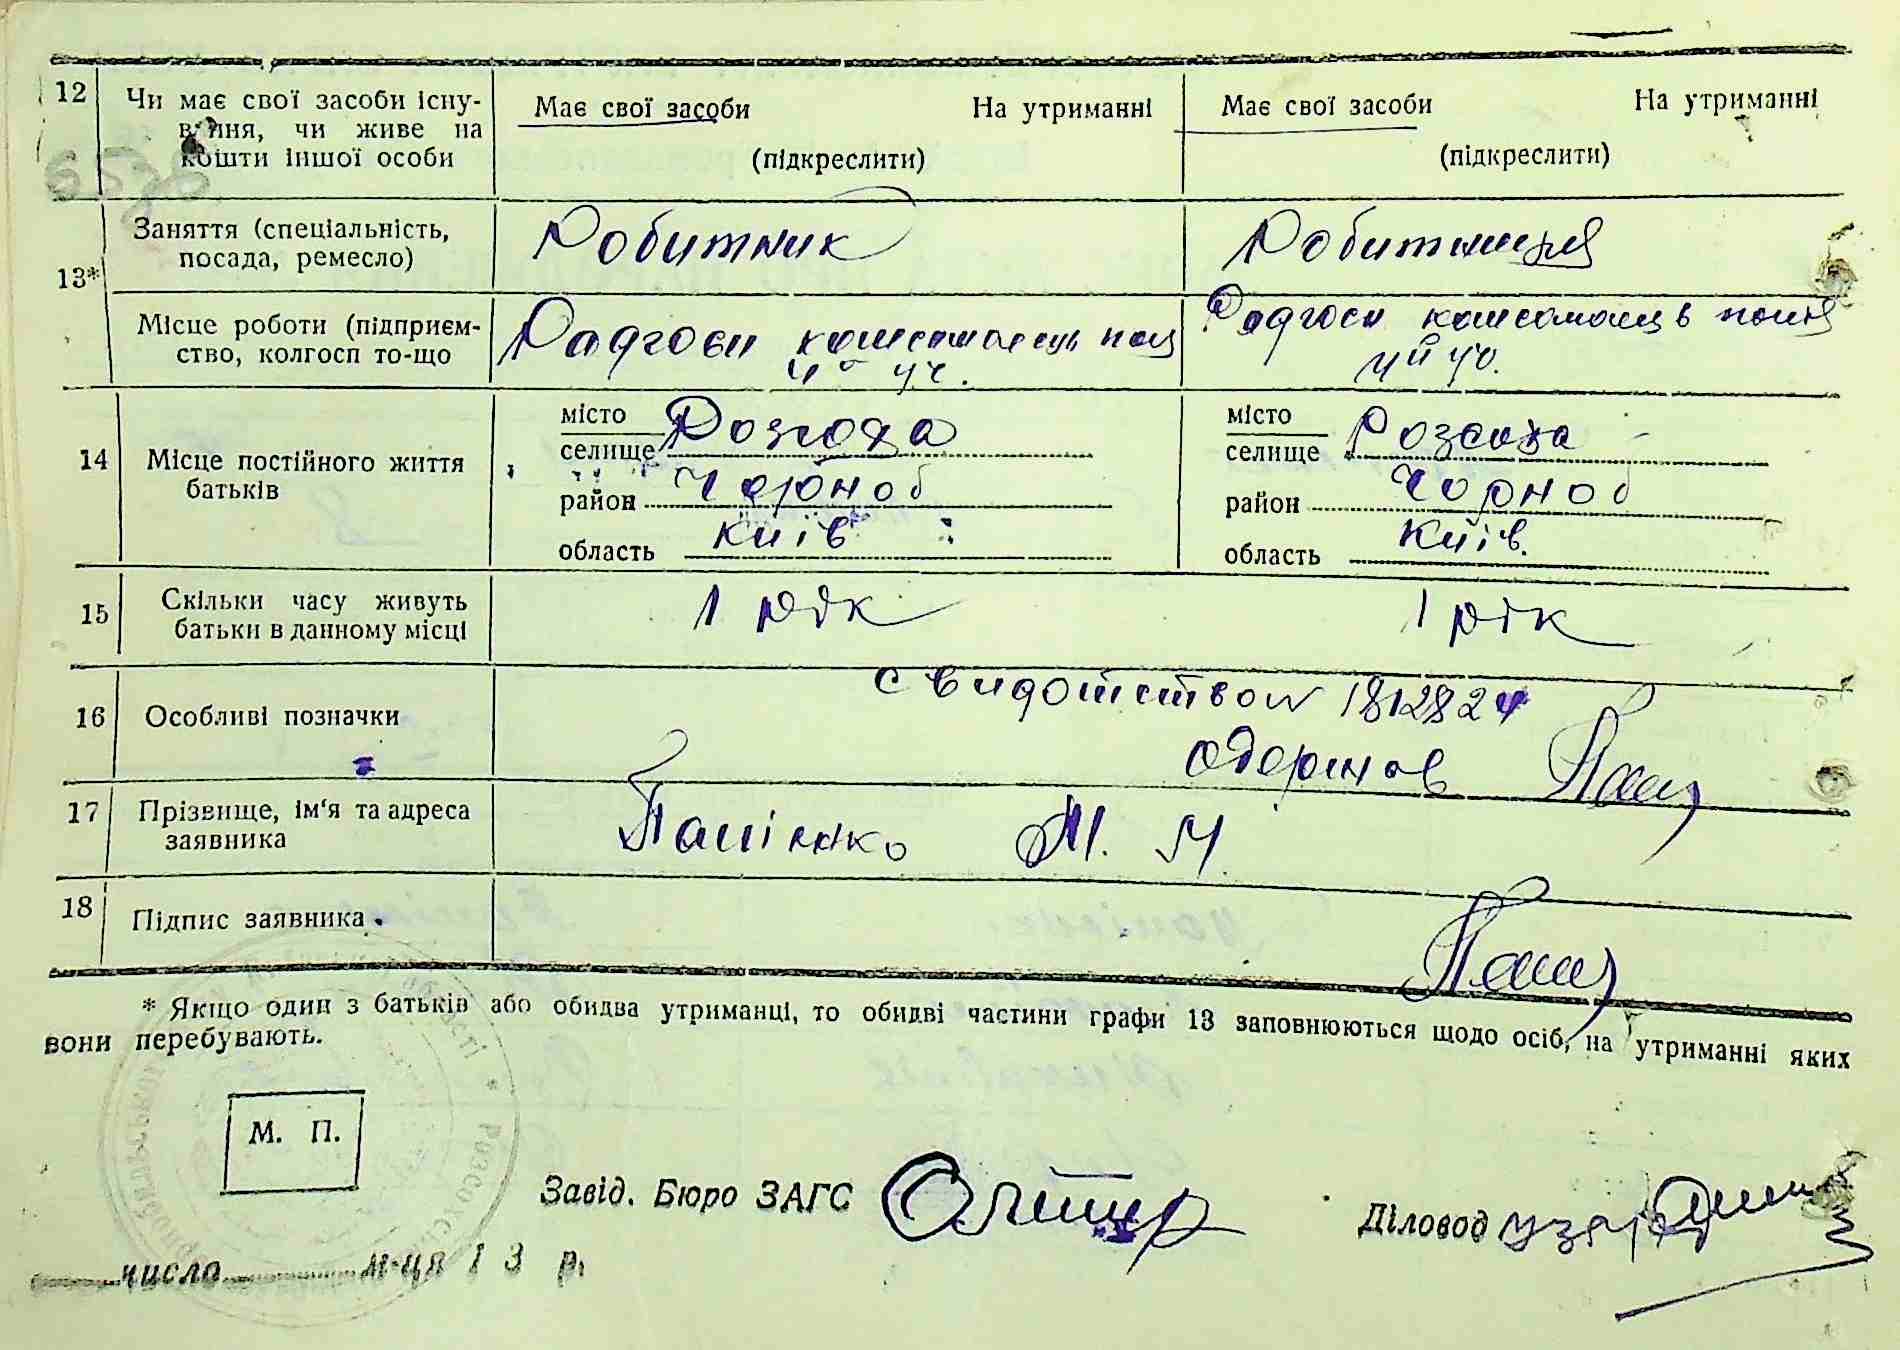 12 Чи має свої засоби існу- Має свої засоби На утриманні Має свої засоби На утриманні
вання, чи живе на
кошти іншої особи (підкреслити) (підкреслити)
13* Заняття (спеціальність, Робитник Робитниця
посада, ремесло)
Місце роботи (підприєм- Радгосп Радгосп
ство, колгосп то-що
14 Місце постійного життя батьків
місто селище Розсоха місто селище Розсоха
район Чорноб район Чорноб
область Київ область Київ.
15 Скільки часу живуть 1 рік 1 рік
батьки в данному місці
16 Особливі позначки свидотство 1812824
одержав
17 Прізвище, ім'я та адреса
заявника М. М.
18 Підпис заявника
* Якщо один з батьків або обидва утриманці, то обидві частини графи 13 заповнюються щодо осіб, на утриманні яких
вони перебувають.
М. П.
Завід. Бюро ЗАГС Діловод
число м-ця 13 р.